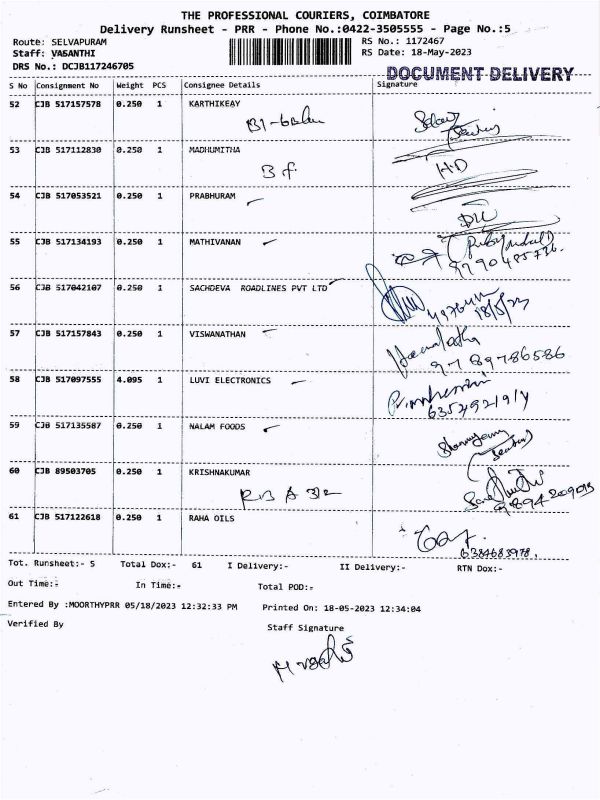 THE PROFESSIONAL COURIERS, COIMBATORE
Delivery Runsheet - PRR - Phone No.:0422-3505555 - Page No.:5
Route: SELVAPURAM RS No.: 1172467
Staff: VASANTHI RS Date: 18-May-2023
DRS No.: DCJB117246705
DOCUMENT DELIVERY
S No Consignment No Weight PCS Consignee Details Signature
52 CJB 517157578 0.250 1 KARTHIKEAY
53 CJB 517112830 0.250 1 MADHUMITHA
H·D
54 CJB 517053521 0.250 1 PRABHURAM
55 CJB 517134193 0.250 1 MATHIVANAN
9790485736.
56 CJB 517042107 0.250 1 SACHDEVA ROADLINES PVT LTD
18/5/23
57 CJB 517157843 0.250 1 VISWANATHAN
9789786586
58 CJB 517097555 4.095 1 LUVI ELECTRONICS
59 CJB 517135587 0.250 1 NALAM FOODS
60 CJB 89503705 0.250 1 KRISHNAKUMAR
61 CJB 517122618 0.250 1 RAHA OILS
6384683978.
Tot. Runsheet:- 5 Total Dox:- 61 I Delivery:- II Delivery:- RTN Dox:-
Out Time:- In Time:- Total POD:-
Entered By :MOORTHYPRR 05/18/2023 12:32:33 PM Printed On: 18-05-2023 12:34:04
Verified By Staff Signature